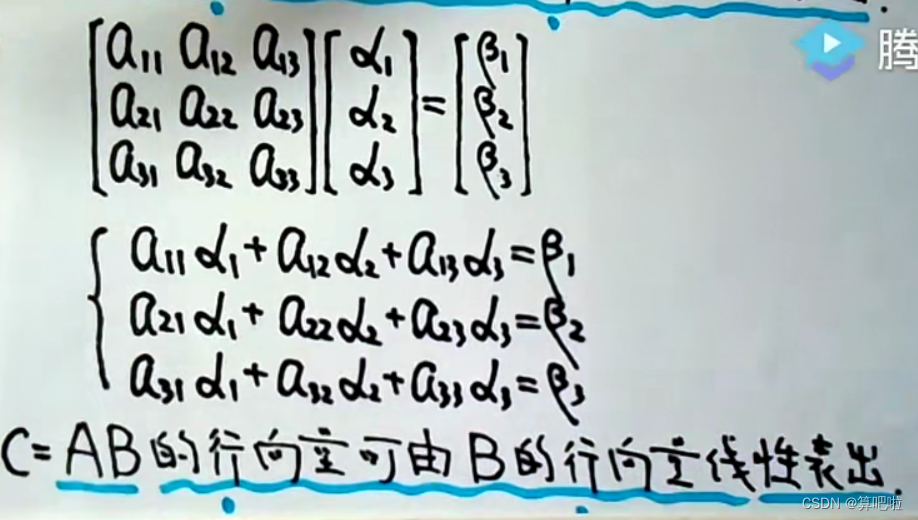 腾
[a₁₁ a₁₂ a₁₃] [α₁] = [β₁]
[a₂₁ a₂₂ a₂₃] [α₂] = [β₂]
[a₃₁ a₃₂ a₃₃] [α₃] = [β₃]
{ a₁₁α₁+a₁₂α₂+a₁₃α₃=β₁
a₂₁α₁+a₂₂α₂+a₂₃α₃=β₂
a₃₁α₁+a₃₂α₂+a₃₃α₃=β₃
C=AB的行向量可由B的行向量线性表出.
CSDN @算吧啦